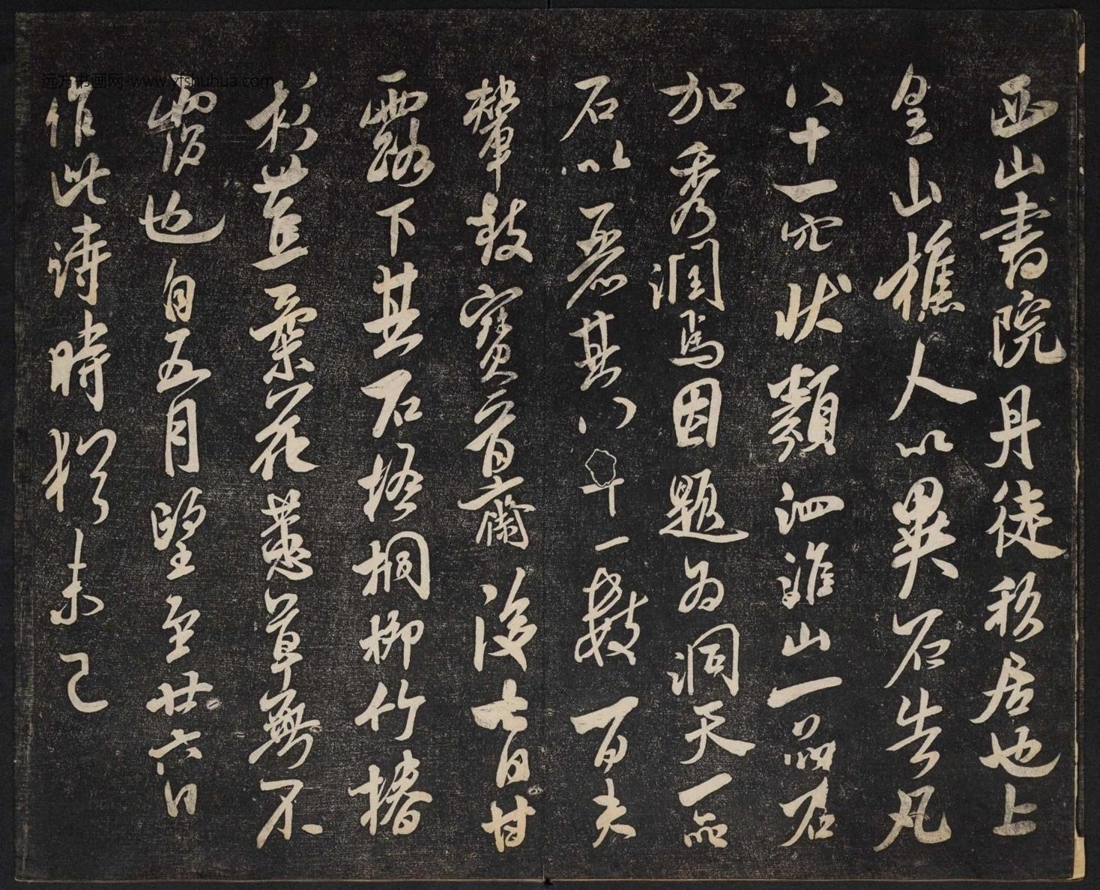 西山書院丹徒私居也上
皇山樵人以異石告凡
八十一穴狀類泗淮山一品石
加秀潤焉因題為洞天一品
石以丕其八十一數百夫
輦致寶晉齋後七日甘
露下其石梧桐柳竹椿
杉花蕙草無不
霑也自五月望至廿六日
作此詩時猶未已
远方书画网-www.yfshuhua.com